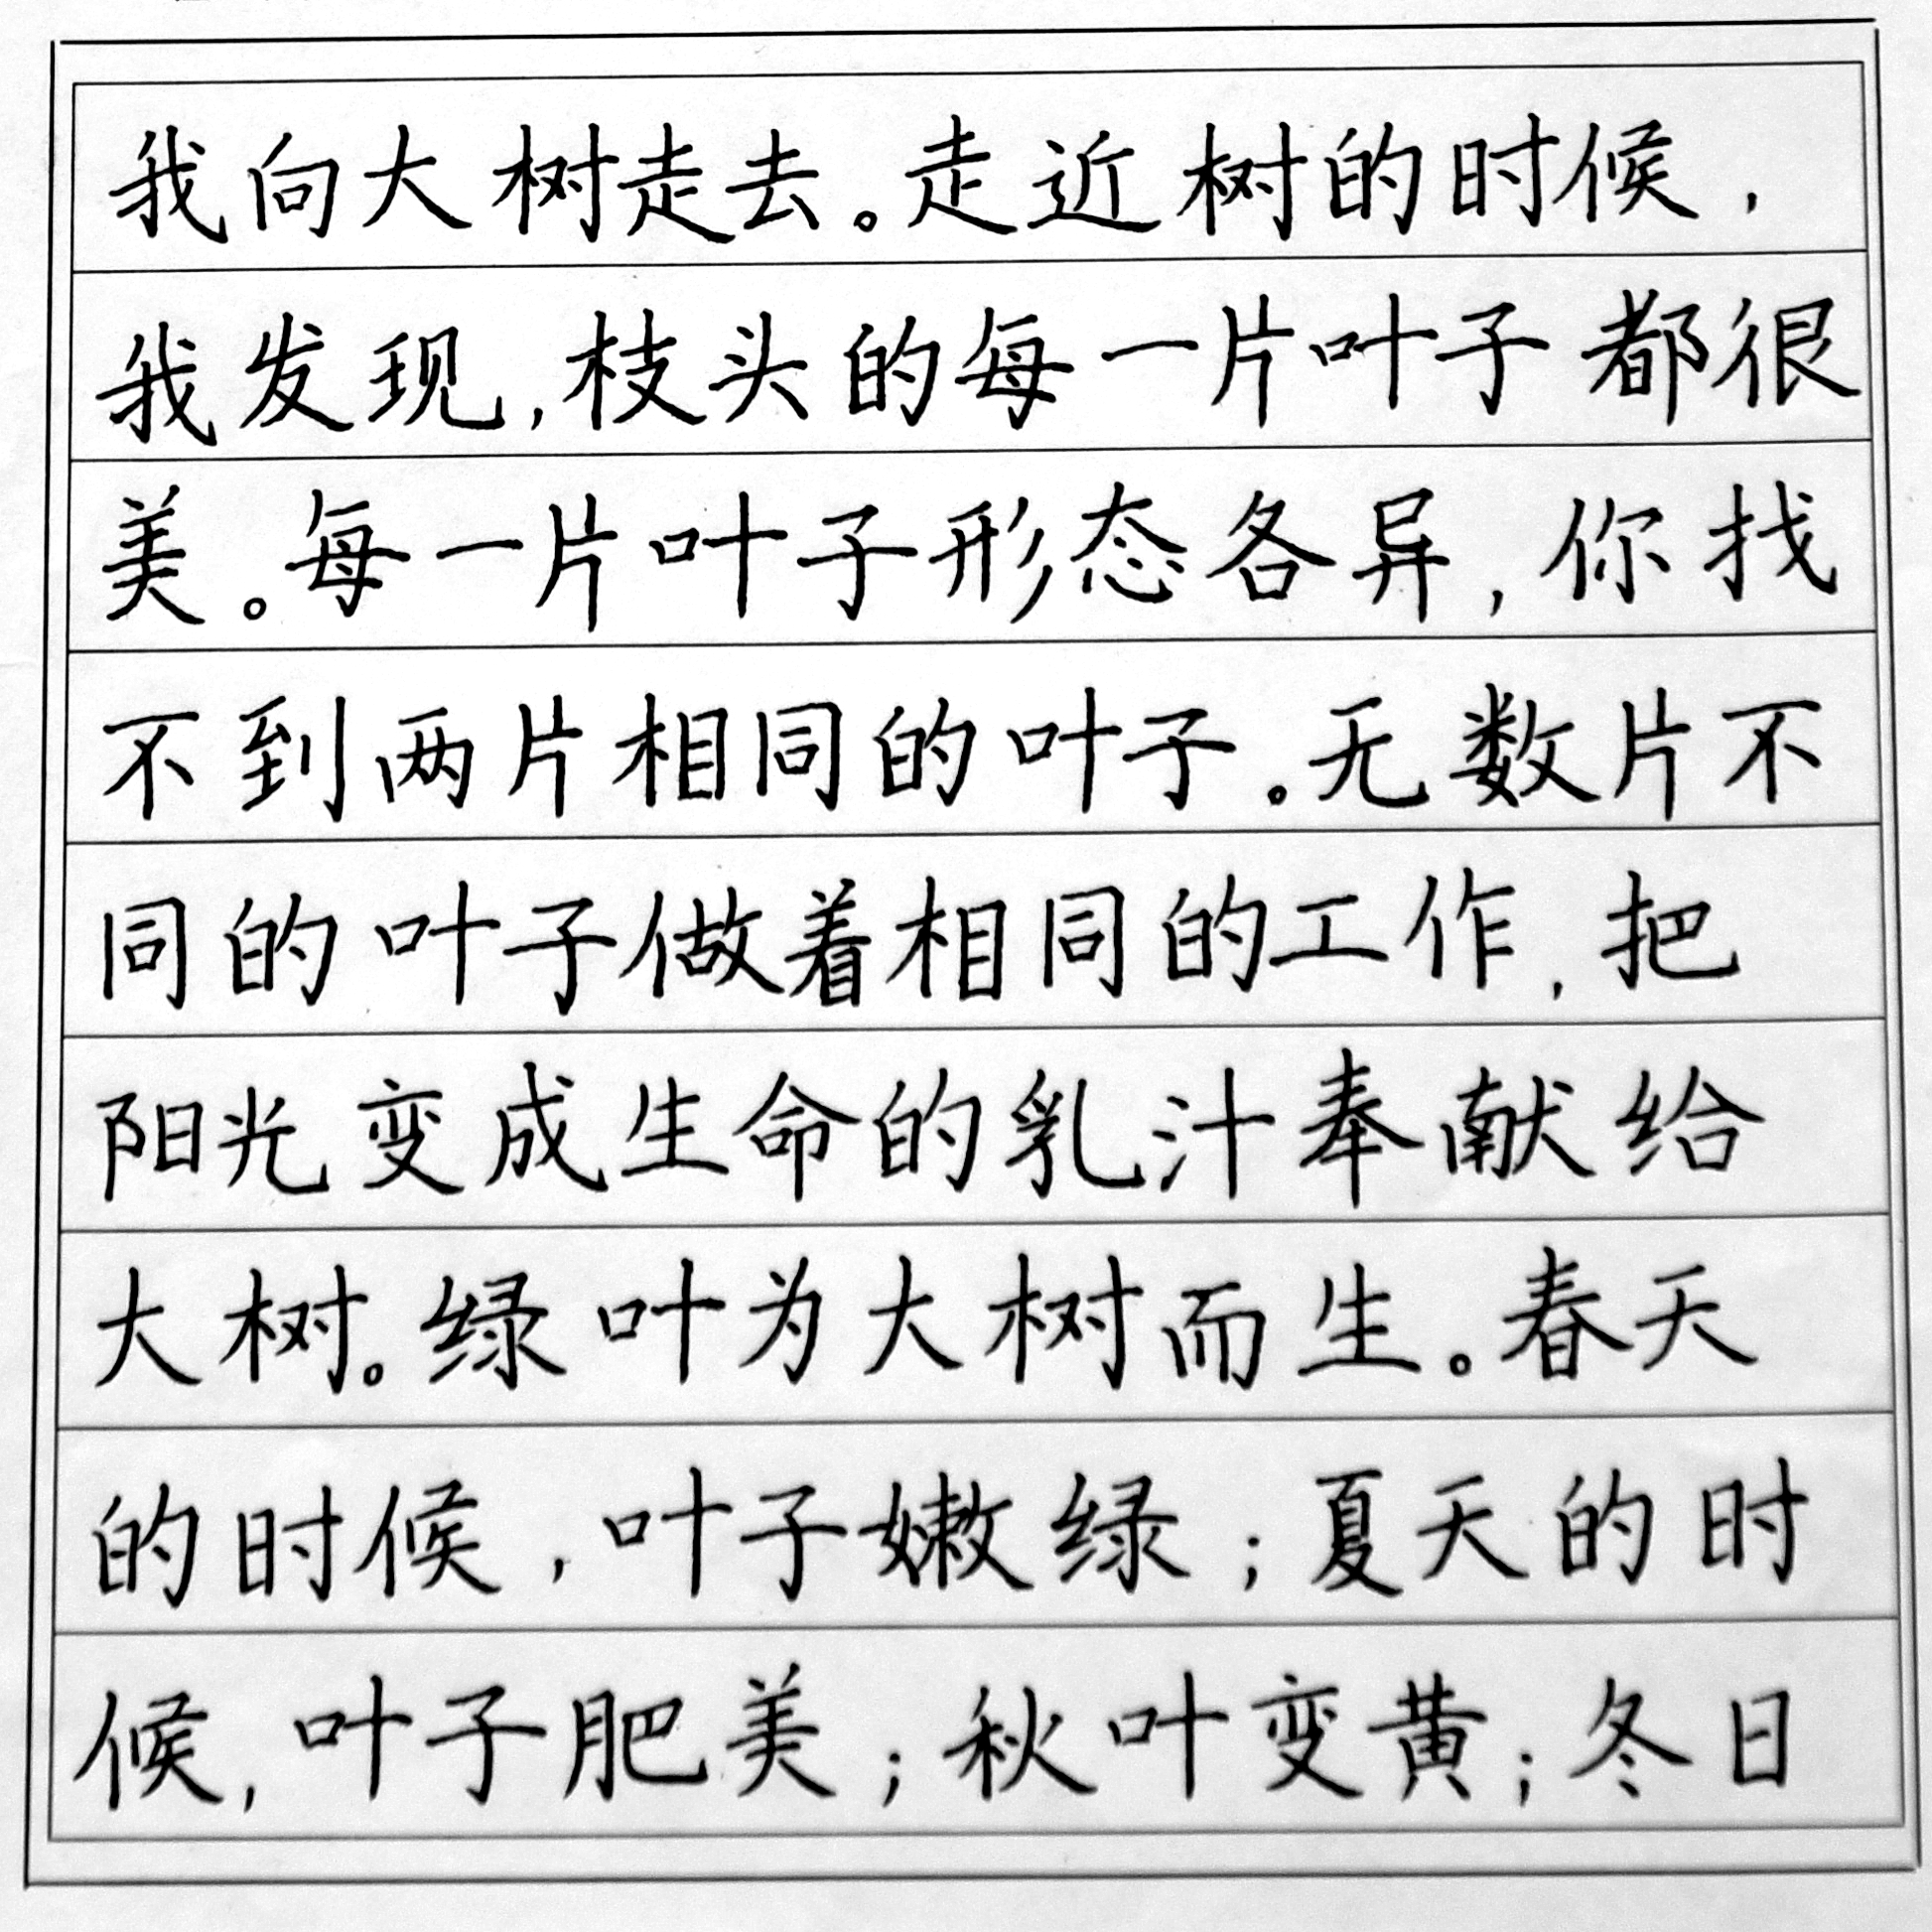 我向大树走去。走近树的时候，
我发现，枝头的每一片叶子都很
美。每一片叶子形态各异，你找
不到两片相同的叶子。无数片不
同的叶子做着相同的工作，把
阳光变成生命的乳汁奉献给
大树。绿叶为大树而生。春天
的时候，叶子嫩绿；夏天的时
候，叶子肥美；秋叶变黄；冬日